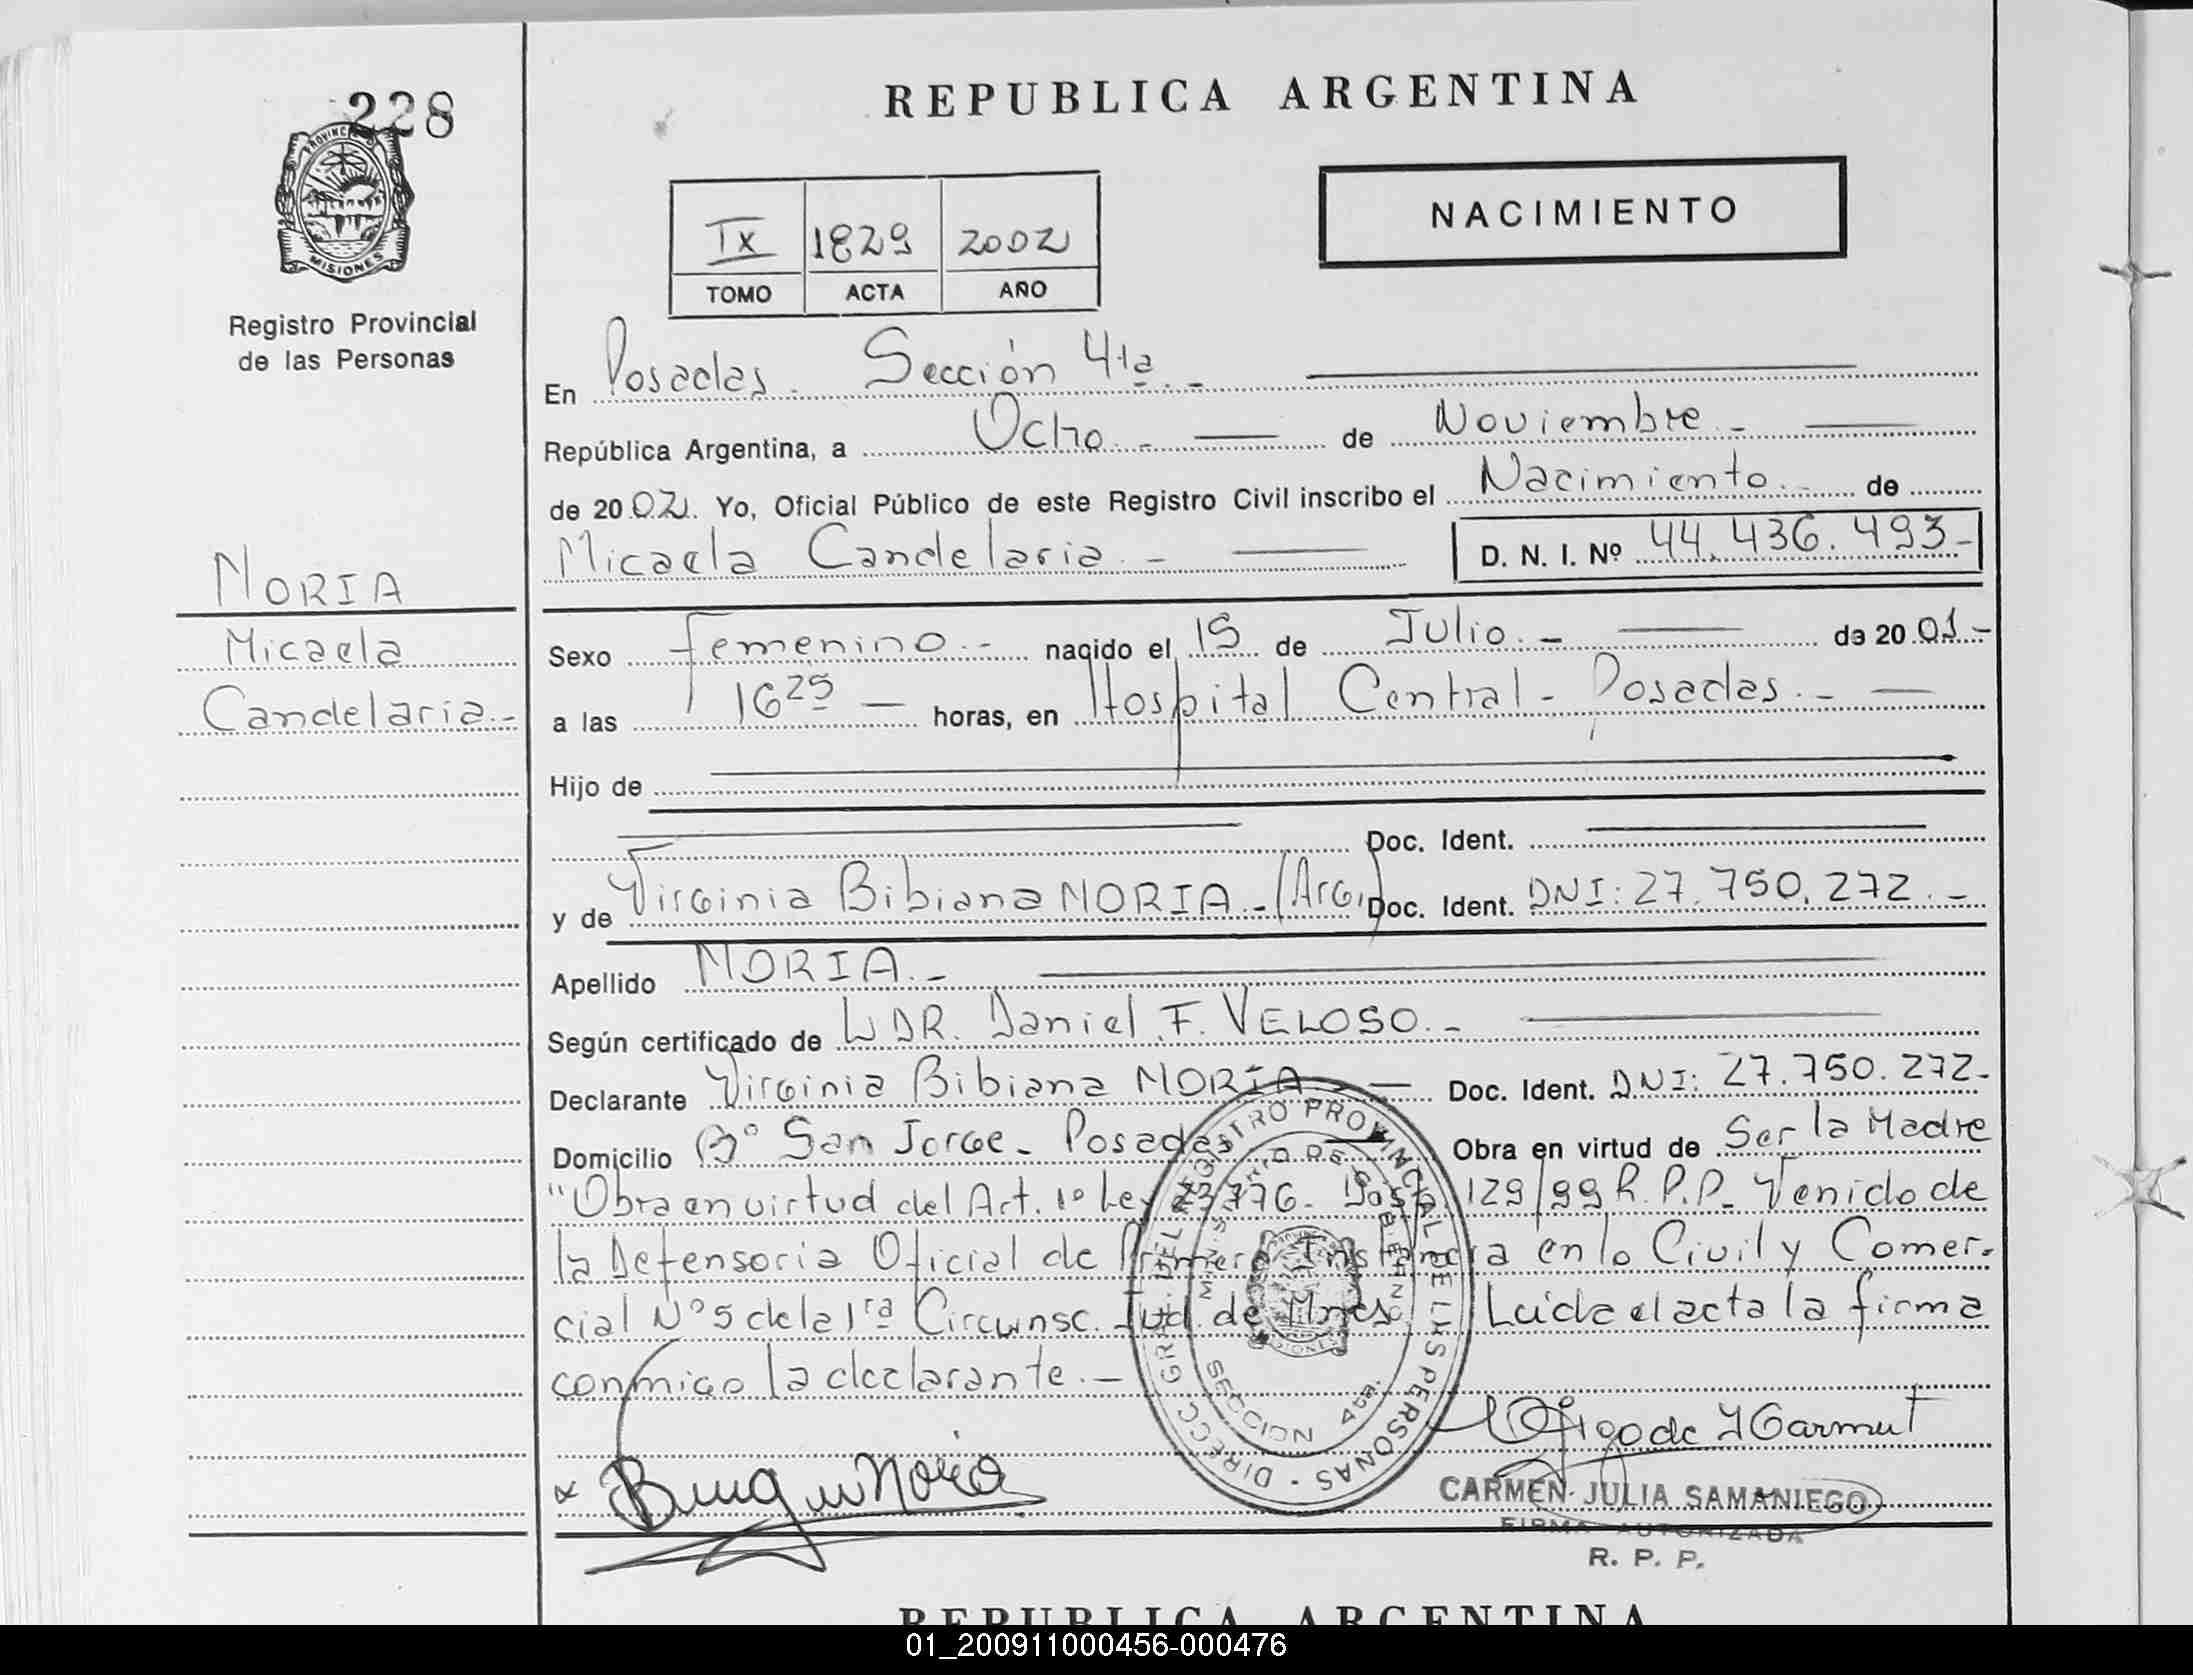 REPUBLICA ARGENTINA
228
PROVINCIA DE MISIONES
Registro Provincial
de las Personas
NACIMIENTO
IX 1829 2002
TOMO ACTA AÑO
En Posadas. Sección 4ta.-
República Argentina, a Ocho.- de Noviembre.-
de 2002. Yo, Oficial Público de este Registro Civil inscribo el Nacimiento.- de
Micaela Candelaria.- D. N. I. Nº 44.436.493-
NORIA
Micaela
Candelaria.-
Sexo Femenino.- nacido el 19 de Julio.- de 2001.-
a las 16 25 horas, en Hospital Central - Posadas.-
Hijo de
Doc. Ident.
y de Virginia Bibiana NORIA.- (Arg.) Doc. Ident. DNI: 27.750.272.-
Apellido NORIA.-
Según certificado de DR. Daniel F. VELOSO.-
Declarante Virginia Bibiana NORIA.- Doc. Ident. DNI: 27.750.272-
Domicilio Bº San Jorge - Posadas Obra en virtud de Ser la Madre
"Obra en virtud del Art. 1º Ley 23.776. 129/99 R.P.P. Venido de
la Defensoria Oficial de Primera Instancia en lo Civil y Comer-
cial Nº 5 de la 1ra Circunsc. Jud. de Mnes. Leida el acta la firma
conmigo la declarante.-
DIRECC. GRAL. DEL REGISTRO PROVINCIAL DE LAS PERSONAS
SECCION 4ta.
CARMEN JULIA SAMANIEGO
FIRMA AUTORIZADA
R. P. P.
REPUBLICA ARGENTINA
01_200911000456-000476